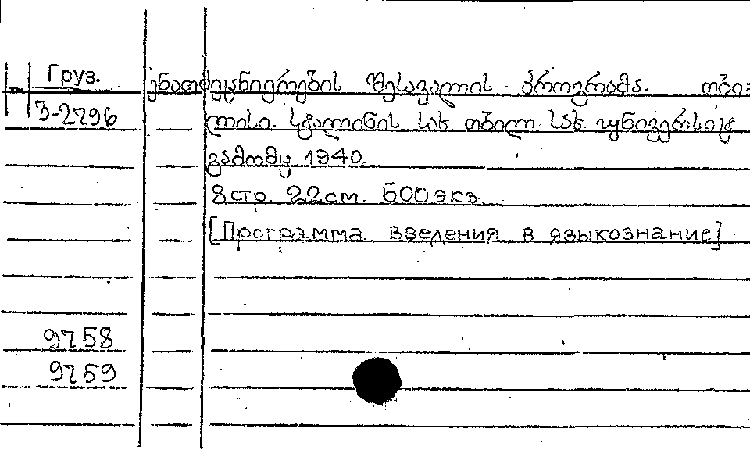 Груз. ენათმეცნიერების შესავალის პროგრამა. თბი-
3-2796 ლისი. სტალინის სახ. თბილ. სახ. უნივერსიტ.
გამომც. 1940.
8 стр. 22 см. 500 экз.
[Программа введения в языкознание]
9758
9759